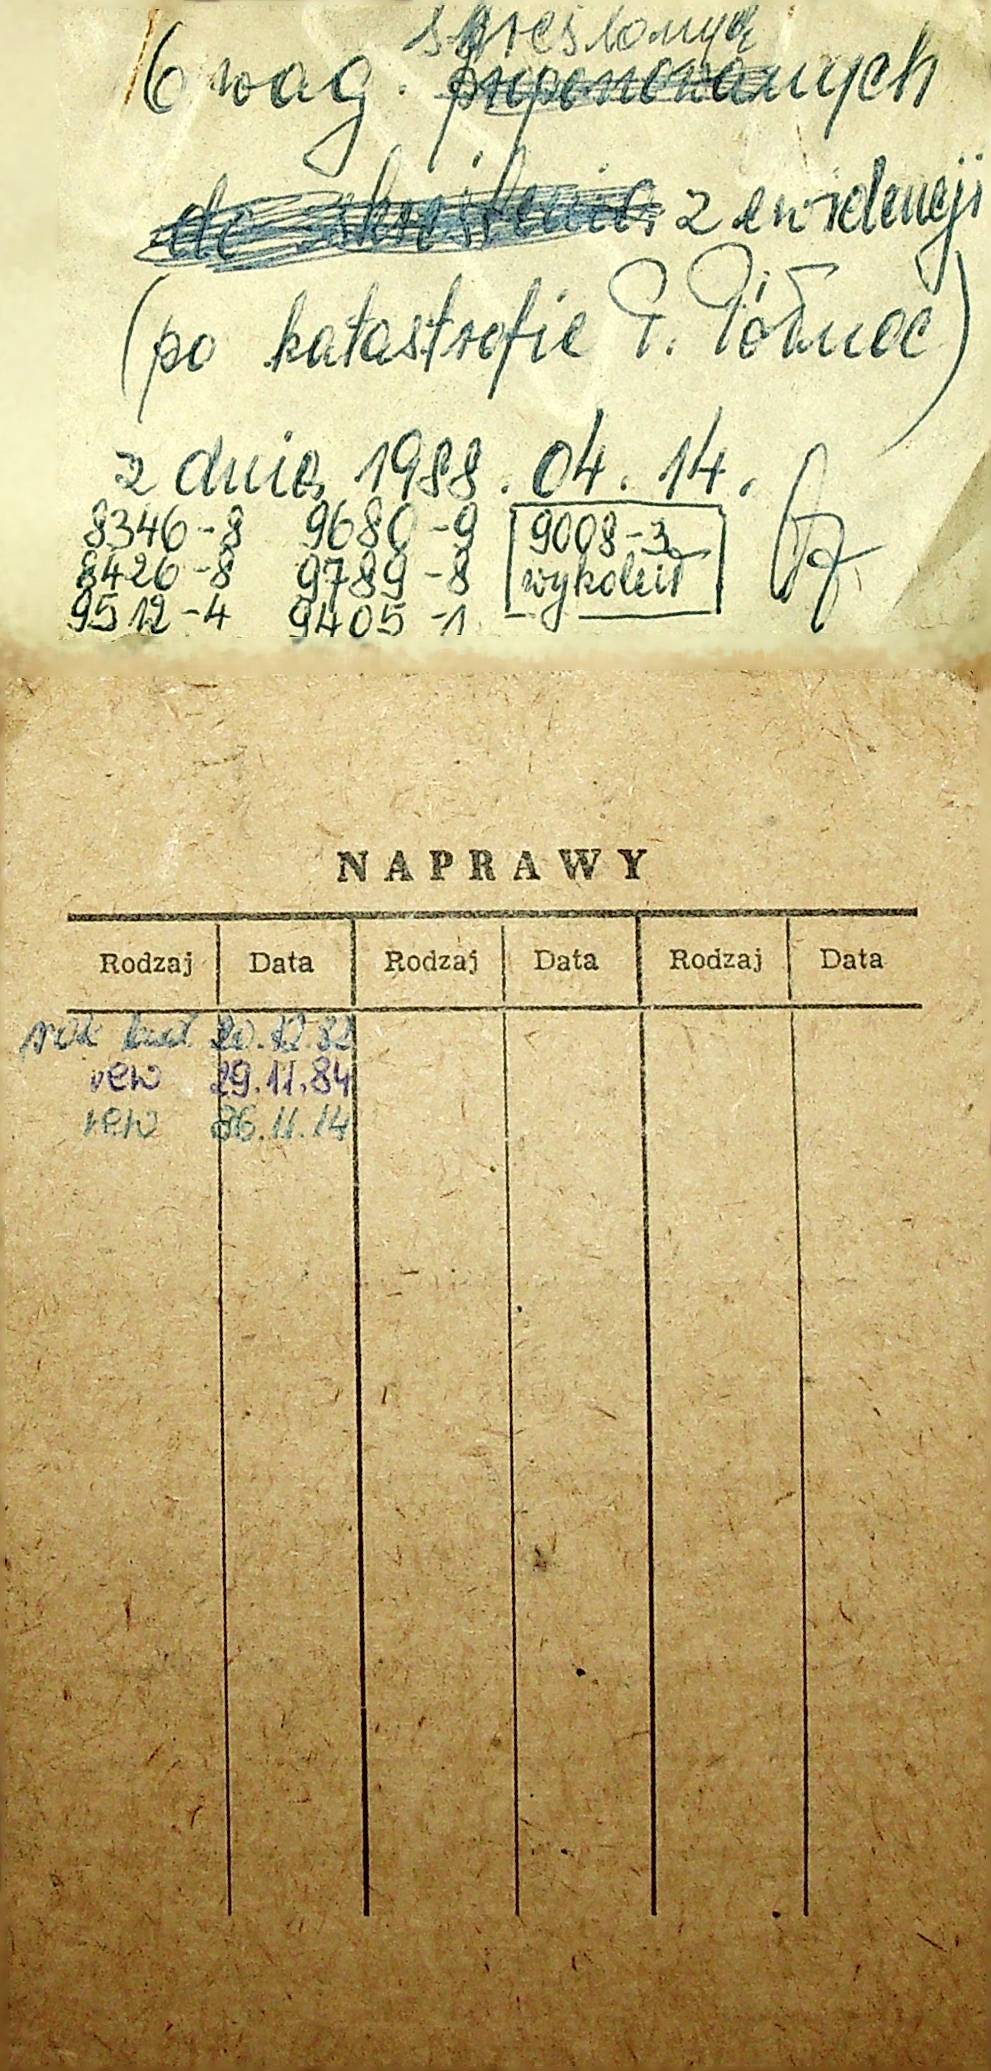 skreślonych
6 wag. proponowanych
do skreślenia z ewidencji
(po katastrofie P. Północ)
z dnia 1988.04.14.
8346-8 9680-9 9008-3
8426-8 9789-8 wykoleił
9512-4 9405-1
NAPRAWY
Rodzaj Data Rodzaj Data Rodzaj Data
rok bud 20.12.82
rew 29.11.84
rew 86.11.14